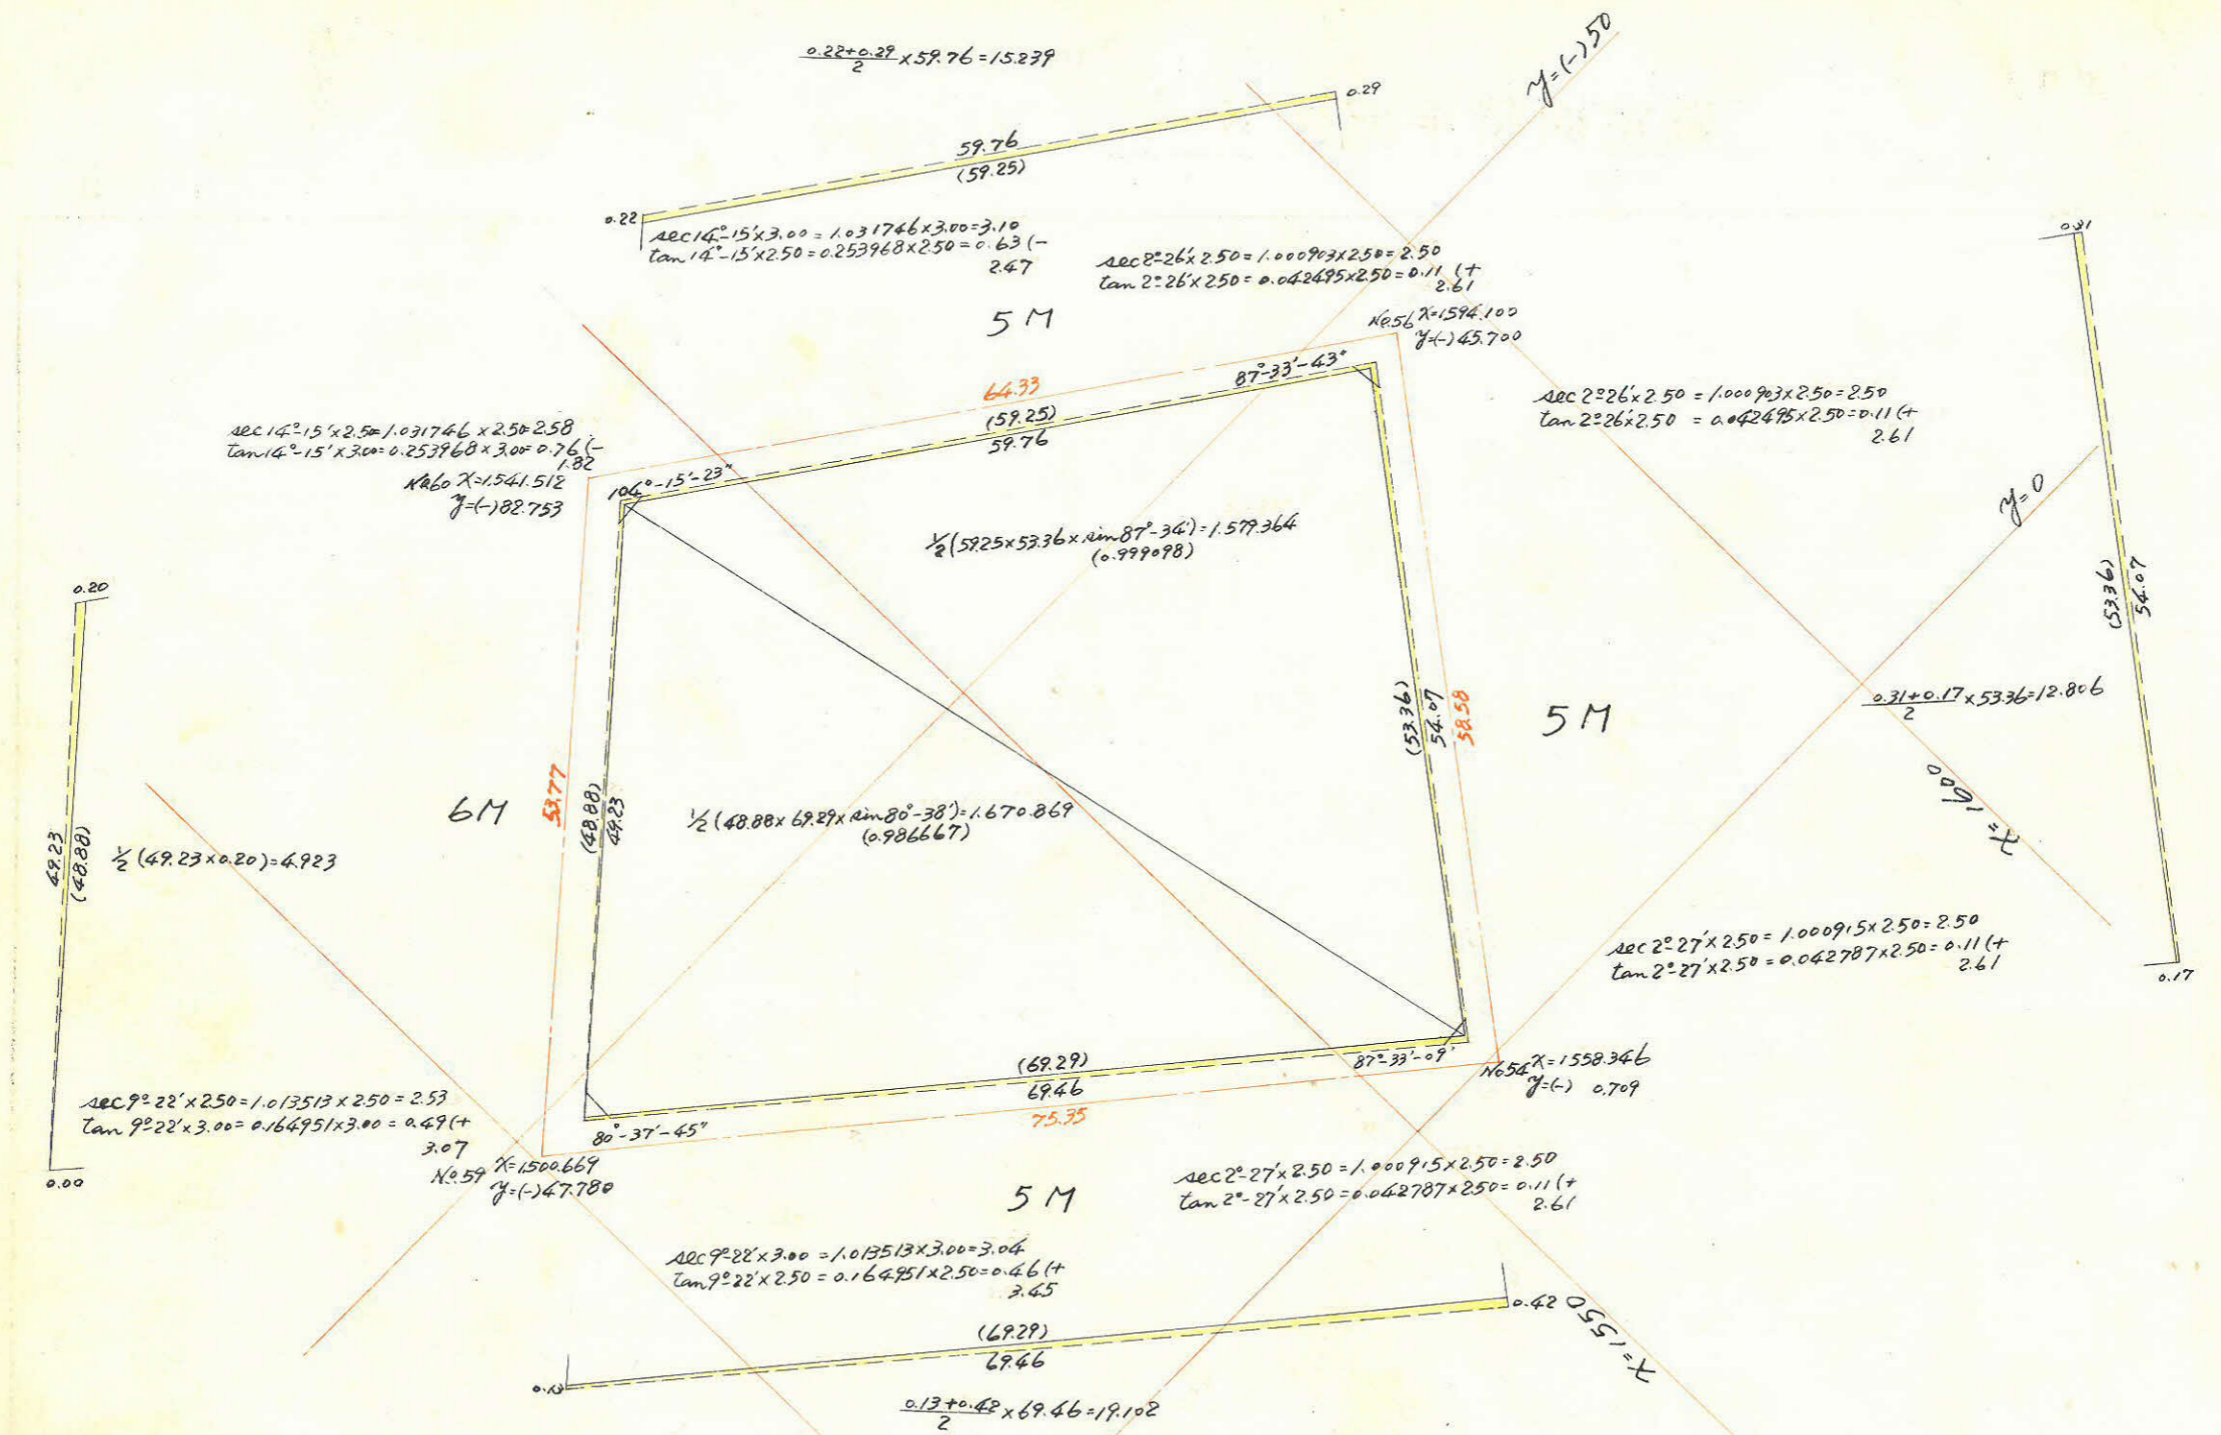 0.22+0.29/2 ×59.76=15.239
y=(-)50
0.29
59.76
(59.25)
0.22
sec14°-15'×3.00=1.031746×3.00=3.10
tan14°-15'×2.50=0.253968×2.50=0.63(-
2.47
sec2°-26'×2.50=1.000903×2.50=2.50
tan2°-26'×2.50=0.042495×2.50=0.11(+
2.61
0.31
5M
No.56 X=1594.100
y=(-)45.700
87°-33'-43"
64.33
(59.25)
59.76
sec2°26'×2.50=1.000903×2.50=2.50
tan2°26'×2.50=0.042495×2.50=0.11(+
2.61
sec14°-15'×2.50=1.031746×2.50=2.58
tan14°-15'×3.00=0.253968×3.00=0.76(-
1.82
No.60 X=1.541.512
y=(-)82.753
104°-15'-23"
y=0
1/2(59.25×53.36×sin87°-34')=1.579.364
(0.999098)
0.20
(53.36)
54.07
(53.36)
54.07
58.58
5M
0.31+0.17/2 ×53.36=12.806
X=1600
6M
53.77
(48.88)
49.23
1/2(48.88×69.29×sin80°-38')=1.670.869
(0.986667)
49.23
(48.88)
1/2(49.23×0.20)=4.923
sec2°-27'×2.50=1.000915×2.50=2.50
tan2°-27'×2.50=0.042787×2.50=0.11(+
2.61
0.17
(69.29)
69.46
75.35
87°-33'-09"
No54 X=1558.346
y=(-) 0.709
sec9°-22'×2.50=1.013513×2.50=2.53
tan9°-22'×3.00=0.164951×3.00=0.49(+
3.07
80°-37'-45"
No.59 X=1,500.669
y=(-)47.780
0.00
5M
sec2°-27'×2.50=1.000915×2.50=2.50
tan2°-27'×2.50=0.042787×2.50=0.11(+
2.61
sec9°-22'×3.00=1.013513×3.00=3.04
tan9°-22'×2.50=0.164951×2.50=0.46(+
3.45
0.42
X=1550
(69.29)
69.46
0.13
0.13+0.42/2 ×69.46=19.102